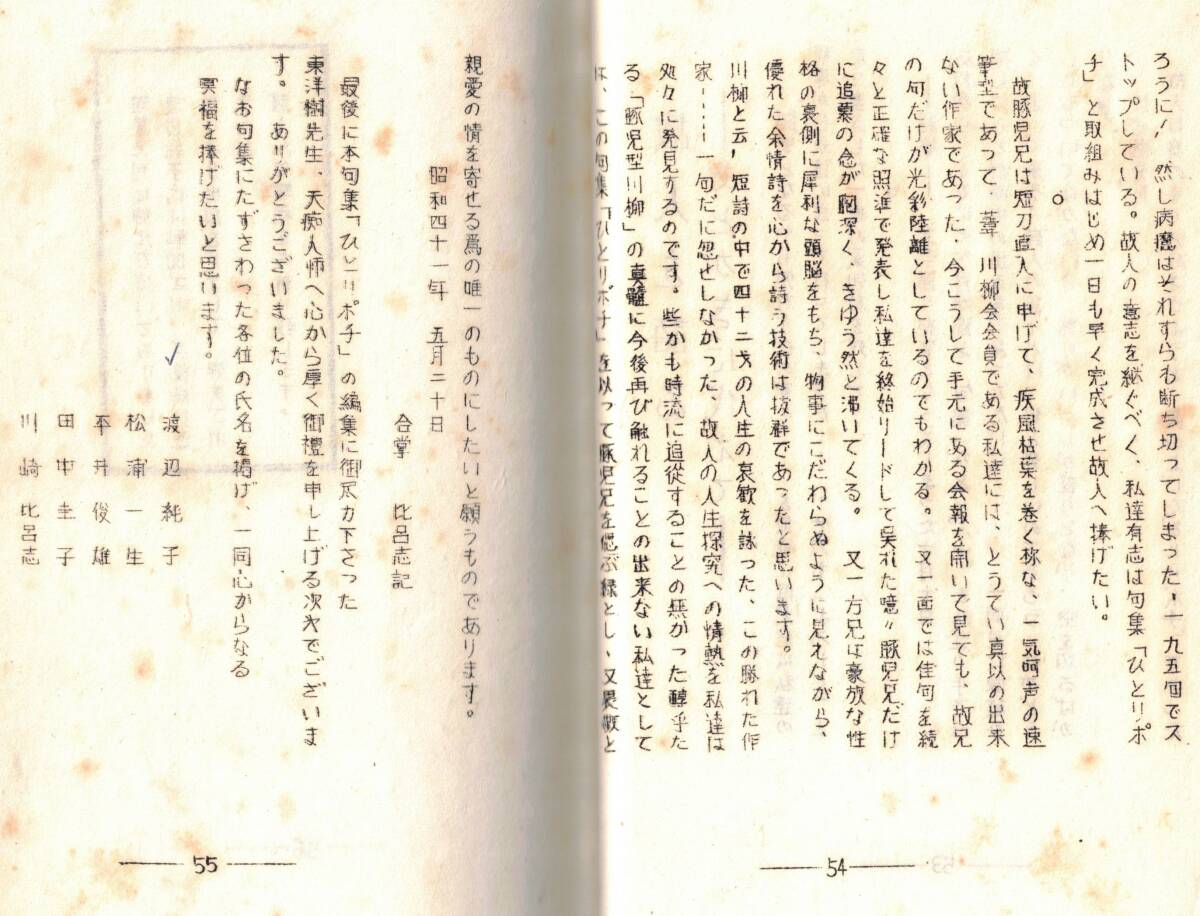 ろうに！　然し病魔はそれすらも断ち切ってしまった・一九五句でス
トップしている。故人の意志を継ぐべく、私達有志は句集「ひとりポ
チ」と取組みはじめ一日も早く完成させ故人へ捧げたい。
○
故豚児兄は短刀直入に申げて、疾風枯葉を巻く称な、一気呵声の速
筆型であって、葦　川柳会会員である私達には、とうてい真以の出来
ない作家であった・今こうして手元にある会報を開いて見ても、故兄
の句だけが光彩陸離としているのでもわかる。　又一面では佳句を続
々と正確な照準で発表し私達を終始リードして呉れた噫〃豚児兄だけ
に追慕の念が胸深く、きゆう然と湧いてくる。　又一方兄は豪放な性
格の裏側に犀利な頭脳をもち、物事にこだわらぬように見えながら、
優れた余情詩を心から詩う技術は抜群であったと思います。
川柳と云う短詩の中で四十二才の人生の哀歓を詠った、この勝れた作
家……一句だに忽せしなかった、故人の人生探究への情熱を私達は
処々に発見するのです。些かも時流に追従することの無かった醇乎た
る「豚児型川柳」の真髄に今後再び触れることの出来ない私達として
は、この句集「ひとりポチ」を以って豚児兄を偲ぶ縁とし、又畏敬と
54
親愛の情を寄せる為の唯一のものにしたいと願うものであります。
昭和四十一年　五月二十日
合掌　比呂志記
最後に本句集「ひとリポチ」の編集に御尽力下さった
東洋樹先生、天痴人師へ心から厚く御禮を申し上げる次次でございま
す。ありがとうございました。
なお句集にたずさわった各位の氏名を掲げ、一同心からなる
冥福を捧げたいと思います。
渡辺純子
松浦一生
平井俊雄
田中圭子
川崎比呂志
55